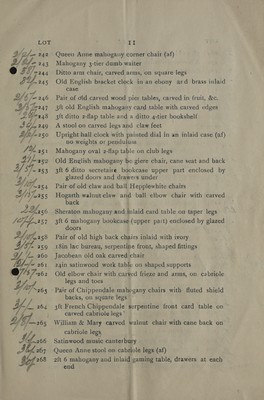 LOT
11
242 Queen Anne mahogany corner chair (af)
243 Mahogany 3-tier dumb waiter
244 Ditto arm chair, carved arms, on square legs
245 Old English bracket clock in an ebony and brass inlaid
case
246 Pair of old carved wood pier tables, carved in fruit, &c.
247 3ft old English mahogany card table with carved edges
248 3ft ditto 2-flap table and a ditto 4-tier bookshelf
249 A stool on carved legs and claw feet
250 Upright ball clock with painted dial in an inlaid case (af)
no weights or pendulum
251 Mahogany oval 2-flap table on club legs
252 Old English mahogany bergiere chair, cane seat and back
253 3ft 6 ditto secretaire bookcase upper part enclosed by
glazed doors and drawers under
254 Pair of old claw and ball Hepplewhite chairs
255 Hogarth walnut claw and ball elbow chair with carved
back
256 Sheraton mahogany and inlaid card table on taper legs
257 3ft 6 mahogany bookcase (upper part) enclosed by glazed
doors
258 Pair of old high back chairs inlaid with ivory
259 18in lac bureau, serpentine front, shaped fittings
260 Jacobean old oak carved chair
261 24in satinwood work table on shaped supports
262 Old elbow chair with carved frieze and arms, on cabriole
legs and toes
263 Pair of Chippendale mahogany chairs with fluted shield
backs, on square legs
264 3ft French Chippendale serpentine front card table on
carved cabriole legs
265 William & Mary carved walnut chair with cane back on
cabriole legs
266 Satinwood music canterbury
267 Queen Anne stool on cabriole legs (af)
268 2ft 6 mahogany and inlaid gaming table, drawers at each
end